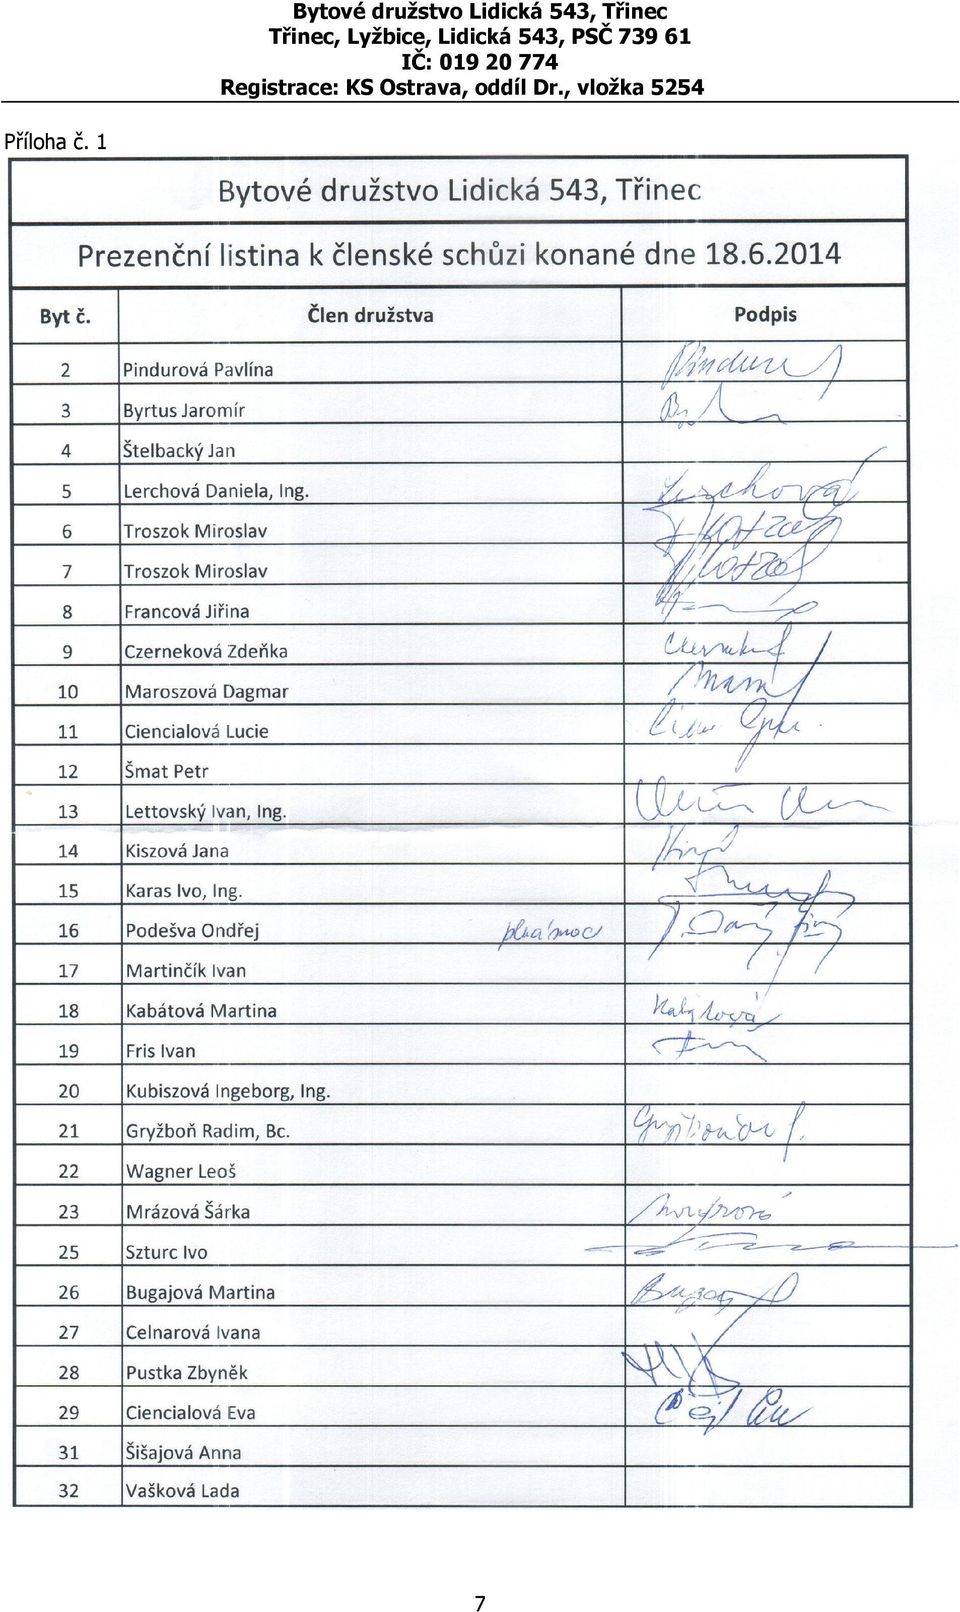 Bytové družstvo Lidická 543, Třinec
Třinec, Lyžbice, Lidická 543, PSČ 739 61
IČ: 019 20 774
Registrace: KS Ostrava, oddíl Dr., vložka 5254
Příloha č. 1
Bytové družstvo Lidická 543, Třinec
Prezenční listina k členské schůzi konané dne 18.6.2014
Byt č. Člen družstva Podpis
2 Pindurová Pavlína
3 Byrtus Jaromír
4 Štelbacký Jan
5 Lerchová Daniela, Ing. Lerchová
6 Troszok Miroslav
7 Troszok Miroslav
8 Francová Jiřina
9 Czerneková Zdeňka
10 Maroszová Dagmar
11 Ciencialová Lucie
12 Šmat Petr
13 Lettovský Ivan, Ing.
14 Kiszová Jana
15 Karas Ivo, Ing.
16 Podešva Ondřej
17 Martinčík Ivan
18 Kabátová Martina Kabátová
19 Fris Ivan
20 Kubiszová Ingeborg, Ing.
21 Gryžboň Radim, Bc.
22 Wagner Leoš
23 Mrázová Šárka
25 Szturc Ivo
26 Bugajová Martina
27 Celnarová Ivana
28 Pustka Zbyněk
29 Ciencialová Eva
31 Šišajová Anna
32 Vašková Lada
7